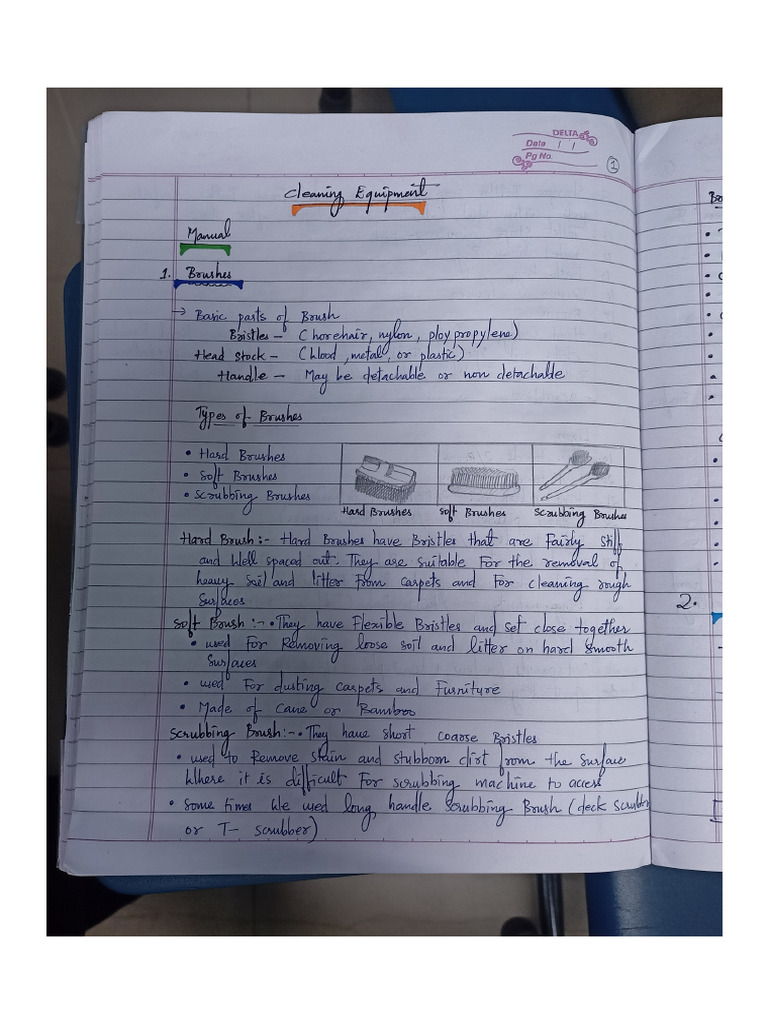 DELTA
Date / /
Pg No.
1
Cleaning Equipment
Manual
1. Brushes
→ Basic parts of Brush
Bristles - (horehair, nylon, ploypropylene)
Head stock - (Wood, metal, or plastic)
Handle - May be detachable or non detachable
Types of Brushes
• Hard Brushes
• Soft Brushes
• Scrubbing Brushes
Hard Brushes Soft Brushes Scrubbing Brushes
Hard Brush :- Hard Brushes have Bristles that are fairly stiff
and Well spaced out. They are suitable For the removal of
heavy soil and litter From carpets and For cleaning rough
surfaces
Soft Brush :- • They have Flexible Bristles and set close together
• used For Removing loose soil and litter on hard smooth
surfaces
• used For dusting carpets and Furniture
• Made of Cane or Bamboo
Scrubbing Brush :- • They have short coarse Bristles
• used to Remove stain and stubborn dist from the surface
Where it is difficult For scrubbing machine to access
• some times We used long handle Scrubbing Brush (deck scrubbr
or T- scrubber)
2.